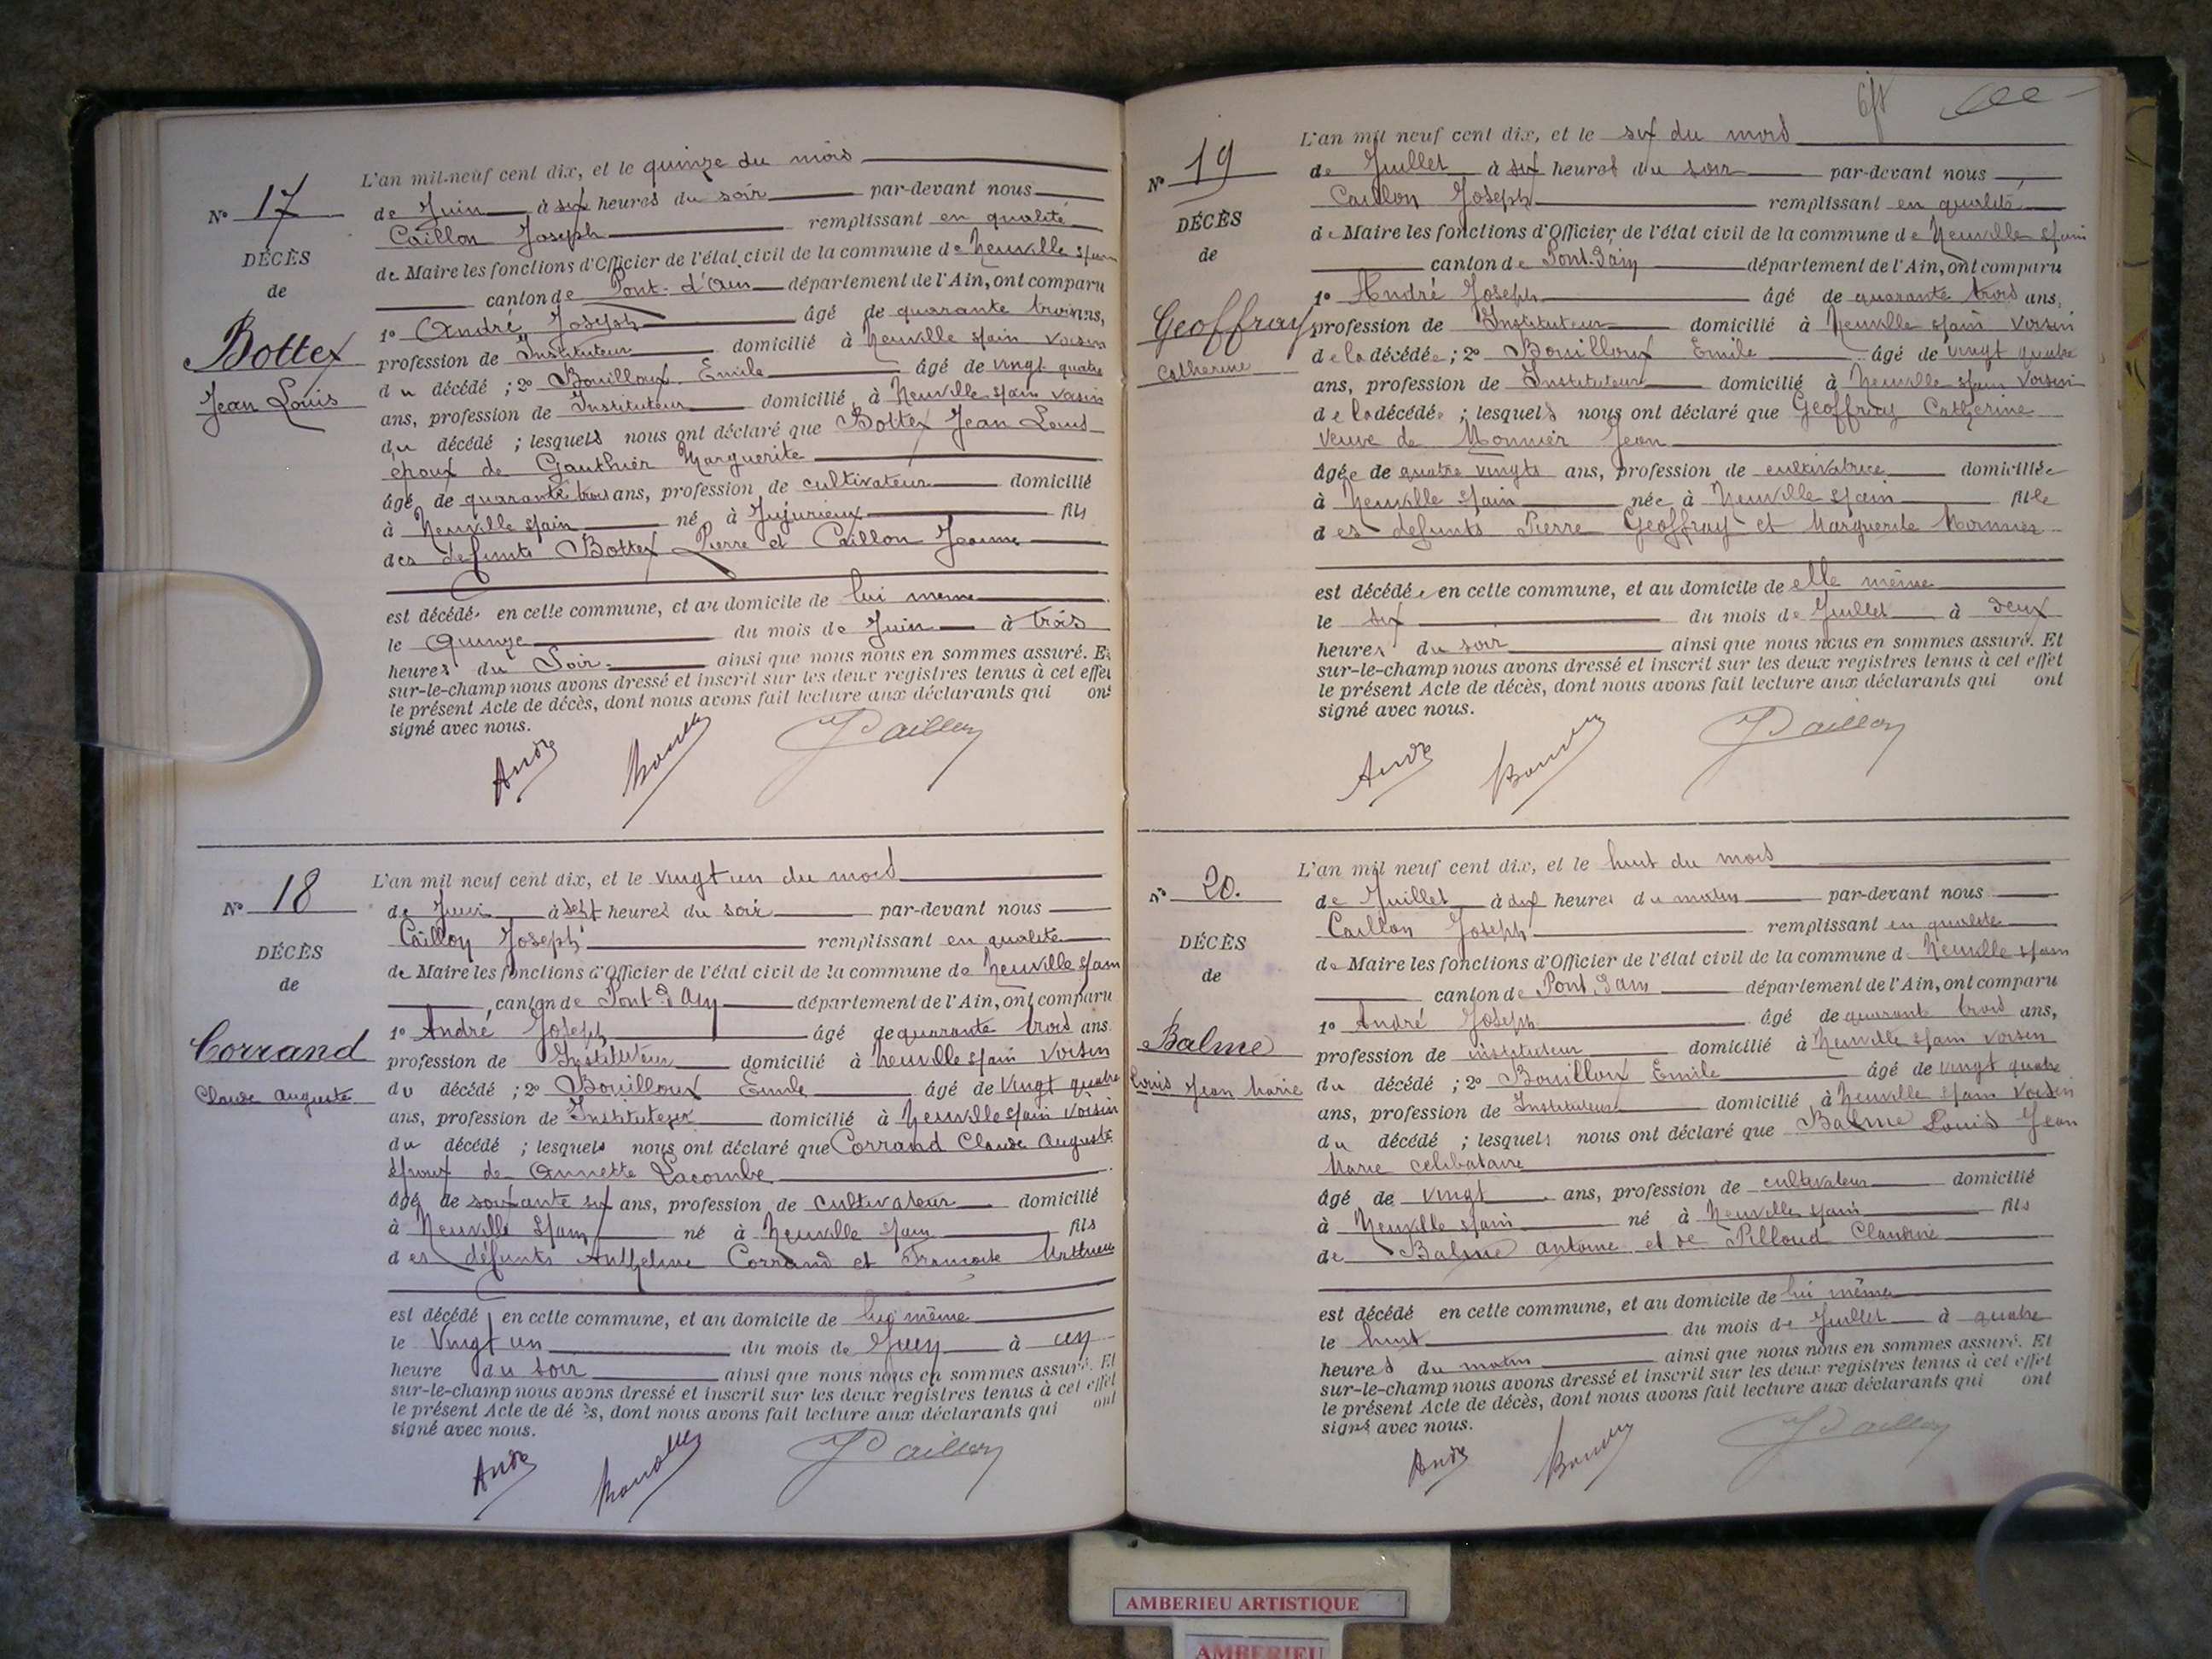 L'an mil-neuf cent dix, et le quinze du mois
de Juin à six heures du soir par-devant nous
Caillon Joseph remplissant en qualité
de Maire les fonctions d'Officier de l'état civil de la commune de Neuville s/ain
canton de Pont-d'Ain département de l'Ain, ont comparu
1° André Joseph âgé de quarante trois ans,
profession de Instituteur domicilié à Neuville s/ain voisin
du décédé ; 2° Bouilloux Emile âgé de vingt quatre
ans, profession de Instituteur domicilié à Neuville s/ain voisin
du décédé ; lesquels nous ont déclaré que Bottex Jean Louis
époux de Gauthier Marguerite
âgé de quarante trois ans, profession de cultivateur domicilié
à Neuville s/ain né à Jujurieux fils
des défunts Bottex Pierre et Caillon Jeanne
est décédé en cette commune, et au domicile de lui meme
le Quinze du mois de Juin à trois
heures du Soir ainsi que nous nous en sommes assuré. Et
sur-le-champ nous avons dressé et inscrit sur les deux registres tenus à cet effet
le présent Acte de décès, dont nous avons fait lecture aux déclarants qui ont
signé avec nous.
André Caillon
N° 17
DÉCÈS
de
Bottex
Jean Louis
L'an mil neuf cent dix, et le vingt un du mois
de Juin à sept heures du soir par-devant nous
Caillon Joseph remplissant en qualité
de Maire les fonctions d'Officier de l'état civil de la commune de Neuville s/ain
canton de Pont-d'Ain département de l'Ain, ont comparu
1° André Joseph âgé de quarante trois ans
profession de Instituteur domicilié à Neuville s/ain voisin
du décédé ; 2° Bouilloux Emile âgé de vingt quatre
ans, profession de Instituteur domicilié à Neuville s/ain voisin
du décédé ; lesquels nous ont déclaré que Corrand Claude Auguste
époux de Annette Lacombe
âgé de soixante six ans, profession de cultivateur domicilié
à Neuville s/ain né à Neuville s/ain fils
des défunts Anthelme Corrand et Francoise
est décédé en cette commune, et au domicile de lui même
le vingt un du mois de Juin à un
heure du soir ainsi que nous nous en sommes assuré. Et
sur-le-champ nous avons dressé et inscrit sur les deux registres tenus à cet effet
le présent Acte de décès, dont nous avons fait lecture aux déclarants qui ont
signé avec nous.
André Caillon
N° 18
DÉCÈS
de
Corrand
Claude Auguste
L'an mil neuf cent dix, et le six du mois
de Juillet à six heures du soir par-devant nous
Caillon Joseph remplissant en qualité
de Maire les fonctions d'Officier de l'état civil de la commune de Neuville s/ain
canton de Pont-d'ain département de l'Ain, ont comparu
1° André Joseph âgé de quarante trois ans,
profession de Instituteur domicilié à Neuville s/ain voisin
de la décédée ; 2° Bouilloux Emile âgé de vingt quatre
ans, profession de Instituteur domicilié à Neuville s/ain voisin
de la décédée ; lesquels nous ont déclaré que Geoffray Catherine
veuve de Monnier Jean
âgée de quatre vingts ans, profession de cultivatrice domiciliée
à Neuville s/ain née à Neuville s/ain fille
des defunts Pierre Geoffray et Marguerite Monnier
est décédée en cette commune, et au domicile de elle même
le six du mois de Juillet à deux
heures du soir ainsi que nous nous en sommes assuré. Et
sur-le-champ nous avons dressé et inscrit sur les deux registres tenus à cet effet
le présent Acte de décès, dont nous avons fait lecture aux déclarants qui ont
signé avec nous.
André Caillon
N° 19
DÉCÈS
de
Geoffray
Catherine
L'an mil neuf cent dix, et le huit du mois
de Juillet à dix heures du matin par-devant nous
Caillon Joseph remplissant en qualité
de Maire les fonctions d'Officier de l'état civil de la commune de Neuville s/ain
canton de Pont d'ain département de l'Ain, ont comparu
1° André Joseph âgé de quarante trois ans,
profession de instituteur domicilié à Neuville s/ain voisin
du décédé ; 2° Bouilloux Emile âgé de vingt quatre
ans, profession de Instituteur domicilié à Neuville s/ain voisin
du décédé ; lesquels nous ont déclaré que Balme Louis Jean
Marie celibataire
âgé de vingt ans, profession de cultivateur domicilié
à Neuville s/ain né à Neuville s/ain fils
de Balme antoine et de Pilloud Claudine
est décédé en cette commune, et au domicile de lui même
le huit du mois de Juillet à quatre
heures du matin ainsi que nous nous en sommes assuré. Et
sur-le-champ nous avons dressé et inscrit sur les deux registres tenus à cet effet
le présent Acte de décès, dont nous avons fait lecture aux déclarants qui ont
signé avec nous.
André Caillon
N° 20.
DÉCÈS
de
Balme
Louis Jean Marie
AMBERIEU ARTISTIQUE
AMBERIEU